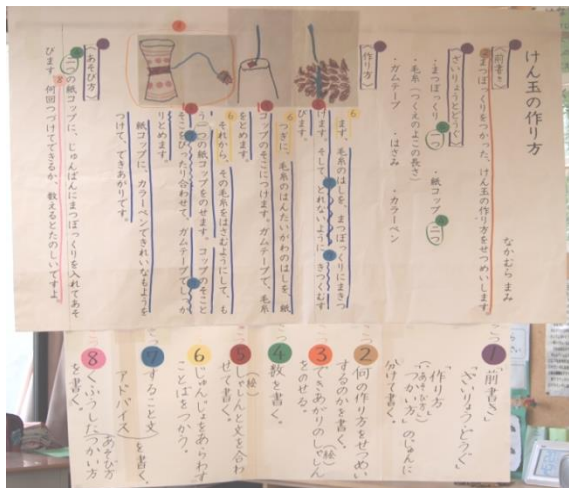 けん玉の作り方
なかむら まみ
〈前書き〉
まつぼっくりをつかった、けん玉の作り方をせつめいします。
〈ざいりょうとどうぐ〉
・まつぼっくり 一つ ・紙コップ 二つ
・毛糸(つくえのよこの長さ)
・ガムテープ ・はさみ ・カラーペン
〈作り方〉
まず、毛糸のはしを、まつぼっくりにまきつ
けます。そして、とれないように、きつくむす
びます。
つぎに、毛糸のはんたいがわのはしを、紙
コップのそこにつけます。ガムテープで、毛糸
をとめます。
それから、その毛糸をはさむようにして、も
う一つの紙コップをのせます。コップのそこと
そこをぴったり合わせて、ガムテープでしっか
りとめます。
紙コップに、カラーペンできれいなもようを
つけて、できあがりです。
〈あそび方〉
二つの紙コップに、じゅんばんにまつぼっくりを入れてあそ
びます。何回つづけてできるか、数えるとたのしいですよ。
1
「前書き」
「ざいりょう・どうぐ」
「作り方」
「(あそび方)つかい方」のじゅんに
分けて書く。
2 何の作り方をせつめい
するのかを書く。
3 できあがりのしゃしん(絵)
をのせる。
4 数を書く。
5 しゃしん(絵)と文を合わ
せて書く。
6 じゅんじょをあらわす
ことばをつかう。
7 すること文
アドバイス
を書く。
8 くふうしたつかい方
あそび方
を書く。